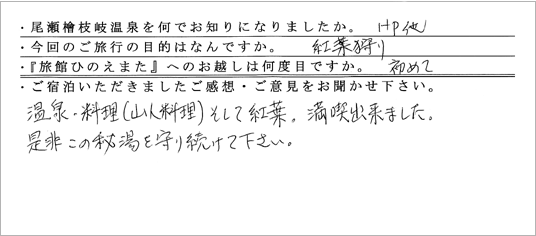 ・尾瀬檜枝岐温泉を何でお知りになりましたか。 HP他
・今回のご旅行の目的はなんですか。 紅葉狩り
・『旅館ひのえまた』へのお越しは何度目ですか。 初めて
・ご宿泊いただきましたご感想・ご意見をお聞かせ下さい。
温泉・料理(山人料理)そして紅葉。満喫出来ました。
是非この秘湯を守り続けて下さい。